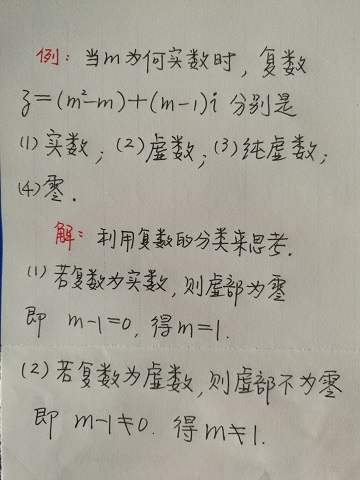 例：当m为何实数时，复数
z=(m²-m)+(m-1)i 分别是
(1)实数；(2)虚数；(3)纯虚数；
(4)零.
解：利用复数的分类来思考.
(1)若复数为实数，则虚部为零
即 m-1=0，得m=1.
(2)若复数为虚数，则虚部不为零
即 m-1≠0. 得m≠1.